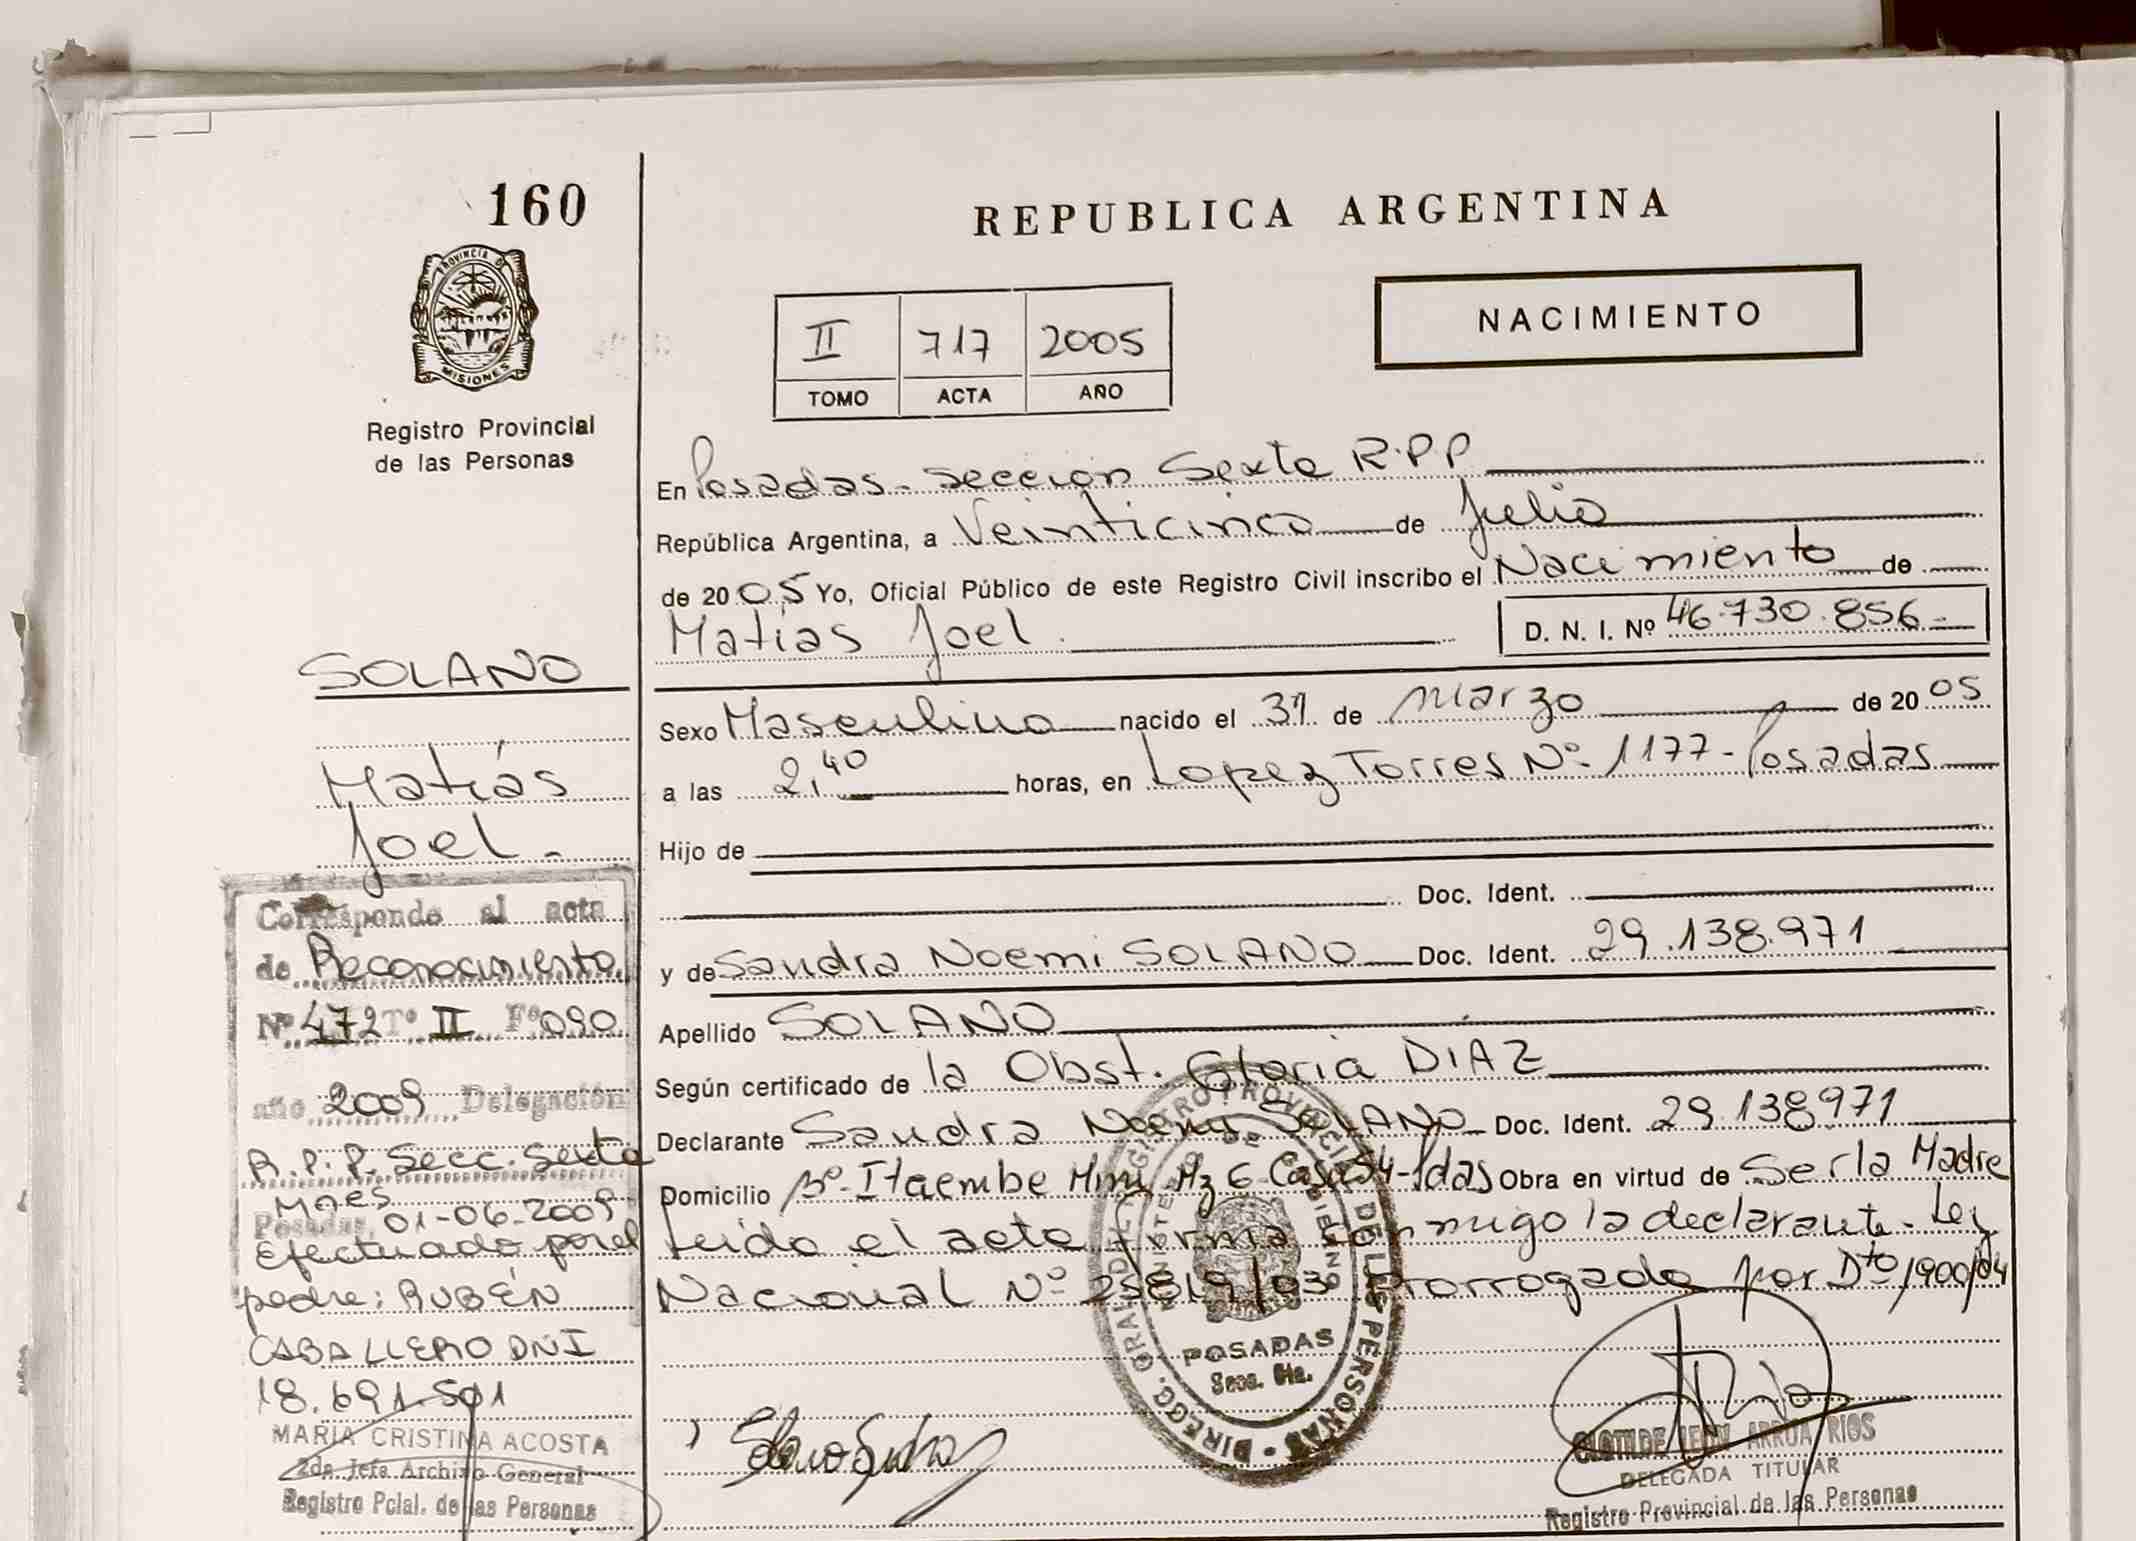 160
REPUBLICA ARGENTINA
PROVINCIA D
MISIONES
Registro Provincial
de las Personas
II 717 2005
TOMO ACTA AÑO
NACIMIENTO
En Posadas - Sección Sexta R.P.P
República Argentina, a Veinticinco de Julio
de 2005 Yo, Oficial Público de este Registro Civil inscribo el Nacimiento de
Matías Joel D. N. I. Nº 46.730.856
Sexo Masculino nacido el 31 de Marzo de 2005
a las 2,40 horas, en Lopez Torres Nº 1177 - Posadas
Hijo de
Doc. Ident.
y de Sandra Noemi SOLANO Doc. Ident. 29.138.971
Apellido SOLANO
Según certificado de la Obst. Gloria DIAZ
Declarante Sandra Noemi SOLANO Doc. Ident. 29.138.971
Domicilio Bº Itaembe Mini Mz 6 Casa 54 - Pdas Obra en virtud de Ser la Madre
Leido el acta firma conmigo la declarante. Ley
Nacional Nº 25819/03 Prorrogado por Dto 1900/04
SOLANO
Matías
Joel.-
Corresponde al acta
de Reconocimiento
Nº 472 Tº II Fº 090
año 2009 Delegación
R.P.P. Secc. Sexta
Mnes
Posadas, 01-06-2009
Efectuado por el
padre: RUBÉN
CABALLERO DNI
18.691.501
MARIA CRISTINA ACOSTA
2da. Jefa Archivo General
Registro Pcial. de las Personas
DIRECC. GRAL. DEL REGISTRO PROVINCIAL DE LAS PERSONAS
MINISTERIO DE GOBIERNO
POSADAS
Secc. 6ta.
CLOTILDE ARRUA RIOS
DELEGADA TITULAR
Registro Provincial de las Personas